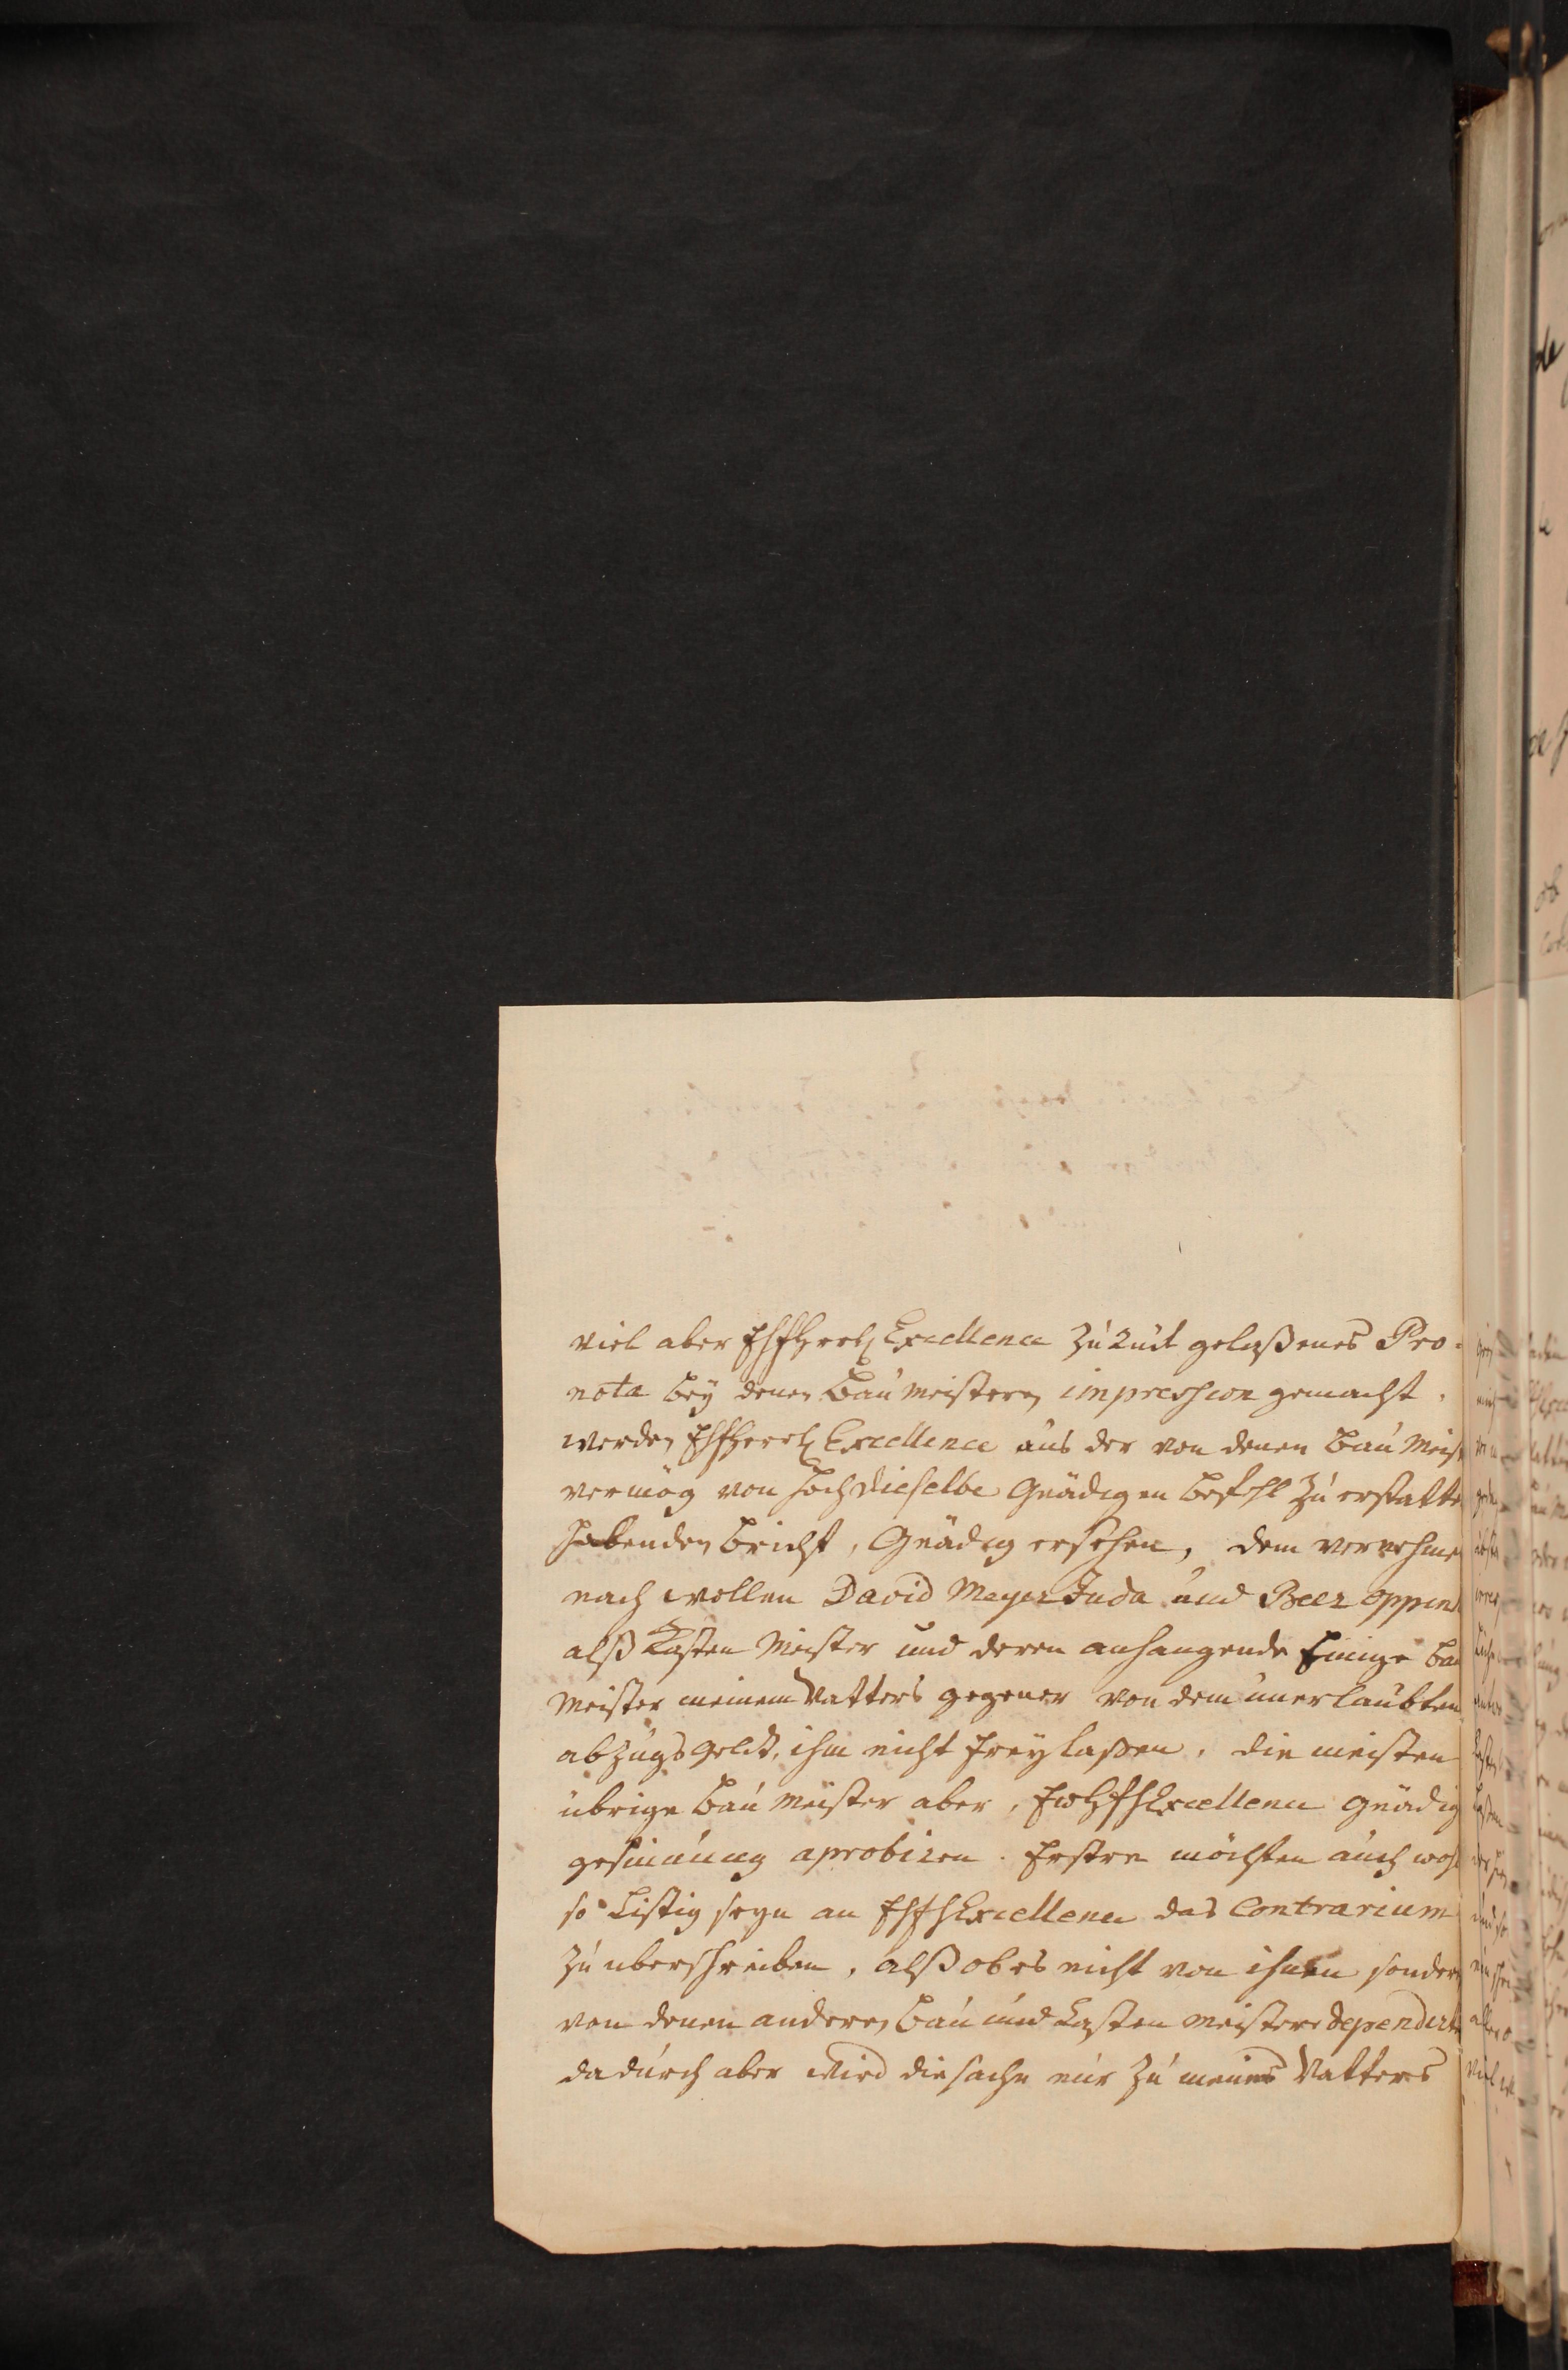 viel aber Hochfreyherrl Excellence zu Rück gelaßenes Pro-
nota bey denen Baumeistern impression gemacht,
werden Excellence aus der von denen Bau Meist
vermög von Hoch dieselbe Gnädigen befehl zu erstatte
habenden bricht, Gnädig ersehen, dem vernehme
nach wollen David Meyer Juda und Beer oppen
alß Kasten Meister und deren anhangende Einige bau
Meister meinem Vatters gegener von dem unerlaubten
abzugs geldt, ihm nicht frey laßen, die meisten
übrige Bau Meister aber, Excellence Gnädig
gesinnung aprobiren. Erstre möchten auch wohl
so Listig seyn an Excellence das Contrarium
zu uberschreiben, alß ob es nicht von ihnen sondern
von denen anderen Bau und Kasten meistere dependirte
dadurch aber wird die sache nur zu meines Vatters